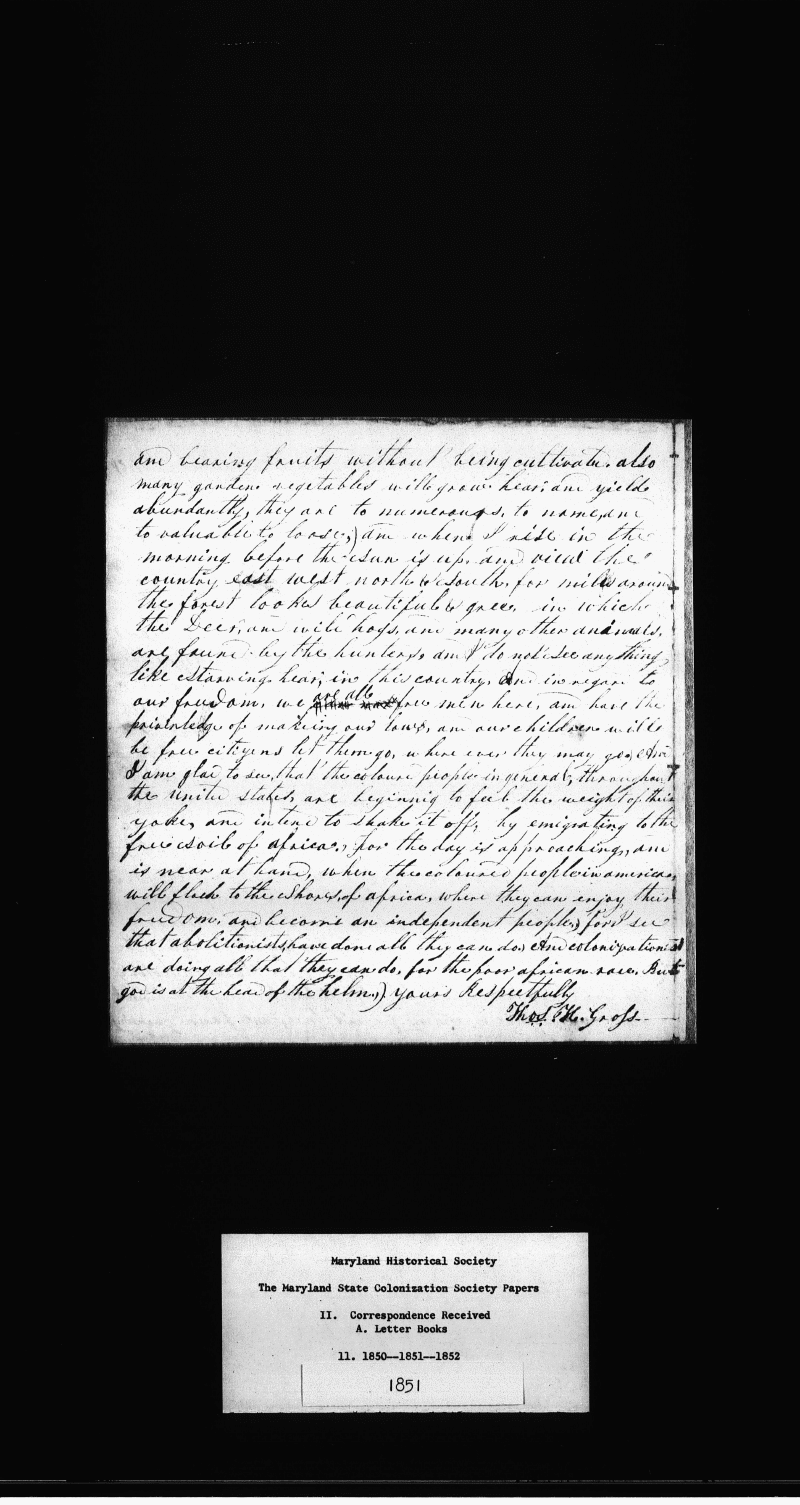 and bearing fruits without being cultivate. also
many garden vegetables will grow hear, and yield
abundantly, they are to numerous, to name, and
to valuable to loose;) and when I rise in the
morning before the sun is up, and view the
country east west north & south, for miles around
the forest lookes beautiful & green in which
the Deer, and wild hogs, and many other animals,
are found by the hunters, and I do not see any thing
like starving hear, in this country, And in regard to
our freedom, we are all free men here, and have the
priviledge of making our laws, and our children will
be free citizens let them go, where ever they may go, And
I am glad to see, that the coloured people in general, throughout
the united states, are beginnig to feel the weight of their
yoke, and intend to shake it off, by emigrating to the
free soil of africa, for the day is approaching, and
is near at hand, when the coloured people in america,
will flock to the shores of africa, where they can enjoy their
freedom, and become an independent people,) for I see
that abolitionists, have done all they can do, And colonizationist
are doing all that they can do, for the poor african race. But
god is at the head of the helm,) yours Respectfully
Thos. H. Gross
Maryland Historical Society
The Maryland State Colonization Society Papers
II. Correspondence Received
A. Letter Books
11. 1850--1851--1852
1851